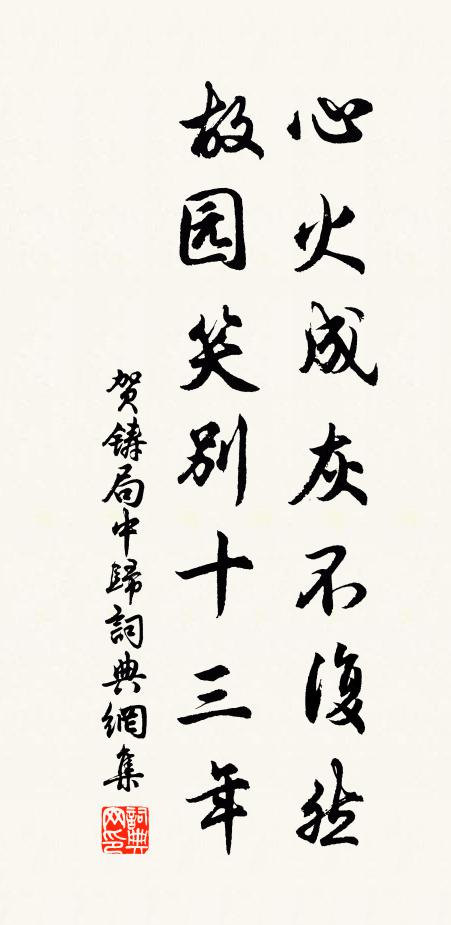 心火成灰不復然
故园笑别十三年
贺铸局中歸詞典網集
詞典网印